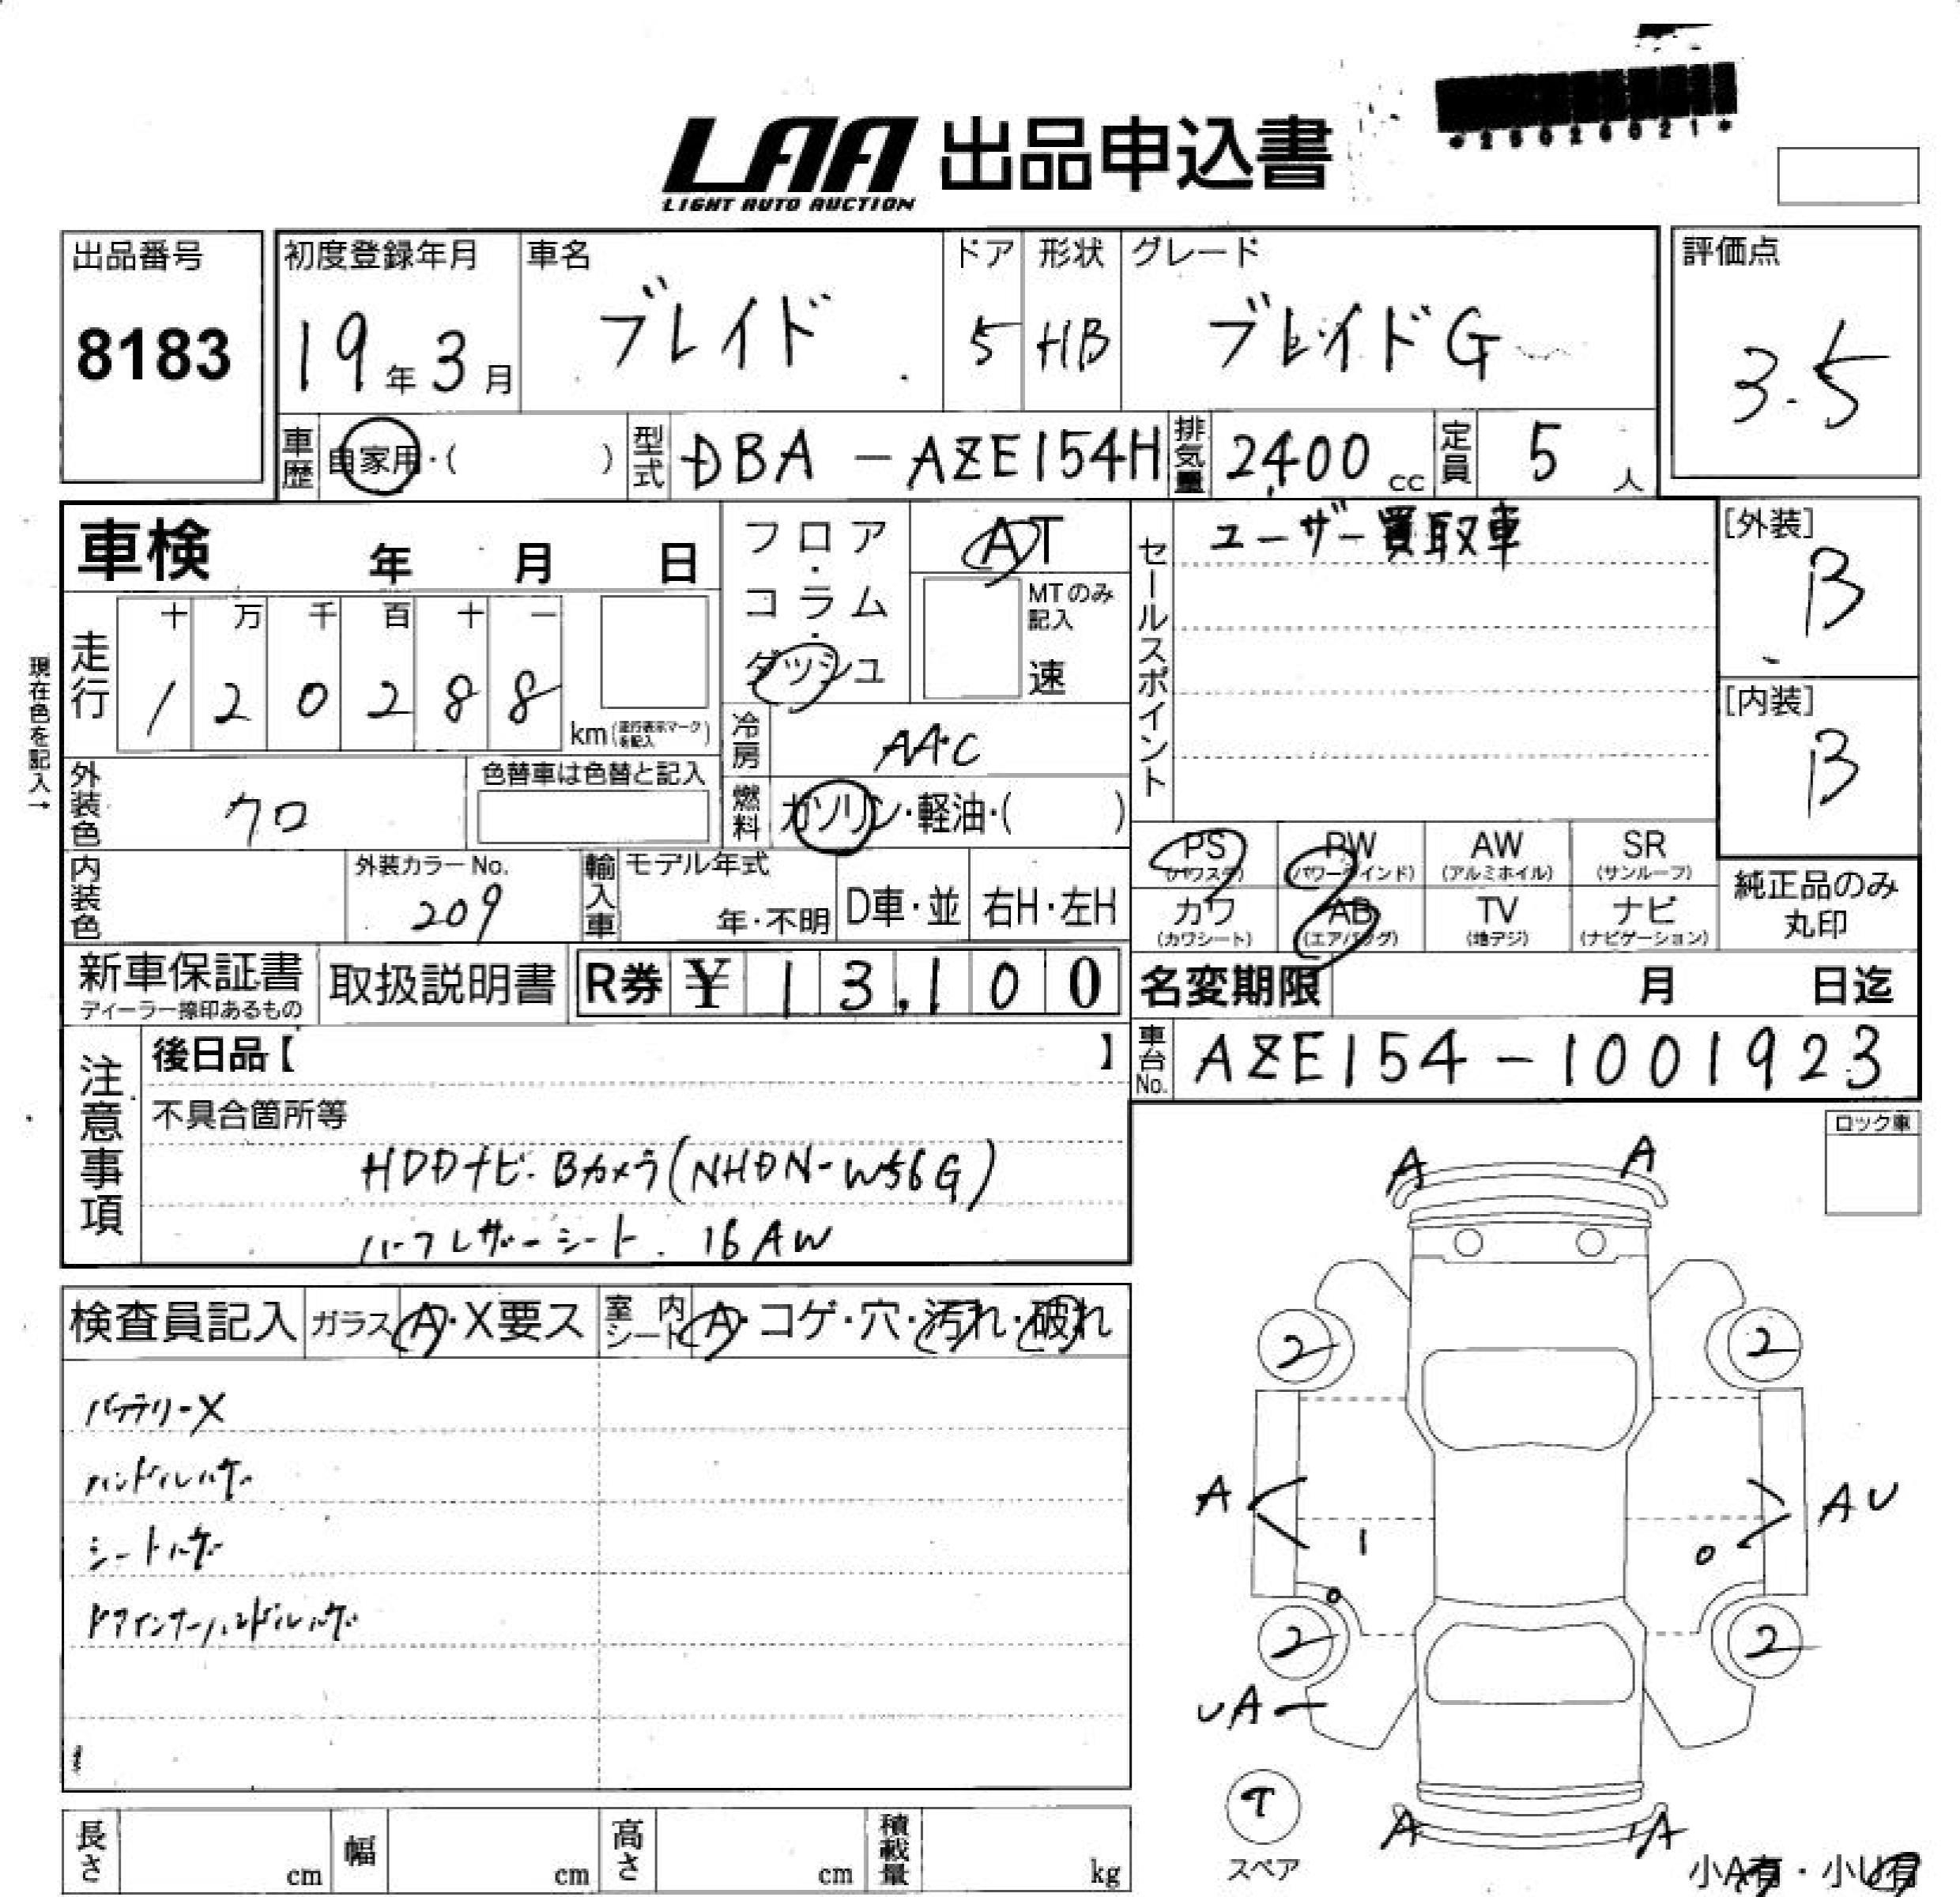 LAA 出品申込書
LIGHT AUTO AUCTION
出品番号
8183
初度登録年月
19年3月
車名
ブレイド
ドア
5
形状
HB
グレード
ブレイドG
評価点
3.5
車歴
自家用・( )
型式
DBA-AZE154H
排気量
2,400 cc
定員
5 人
車検 年 月 日
フロア・コラム・ダッシュ
AT
MTのみ記入
速
セールスポイント
ユーザー買取車
[外装]
B
[内装]
B
現在色を記入→
走行
十 万 千 百 十 一
1 2 0 2 8 8
km(走行表示マークを記入)
冷房
AAC
外装色
クロ
色替車は色替と記入
燃料
ガソリン・軽油・( )
PS (パワステ)
PW (パワーウインド)
AW (アルミホイル)
SR (サンルーフ)
カワ (カワシート)
AB (エアバッグ)
TV (地デジ)
ナビ (ナビゲーション)
純正品のみ丸印
内装色
外装カラーNo.
209
輸入車
モデル年式
年・不明
D車・並
右H・左H
新車保証書
ディーラー捺印あるもの
取扱説明書
R券 ¥ 13,100
名変期限 月 日迄
車台No.
AZE154-1001923
注意事項
後日品【 】
不具合箇所等
HDDナビ・Bカメラ(NHDN-W56G)
ハーフレザーシート. 16AW
ロック車
検査員記入
ガラス
A・X要ス
室内シート
A・コゲ・穴・汚れ・破れ
バッテリーX
ハンドルハゲ
シートハゲ
ドアインナーハンドルハゲ
A A
2 2
A
AU
2 2
UA
T
スペア
A A
小A有・小U有
長さ cm
幅 cm
高さ cm
積載量 kg